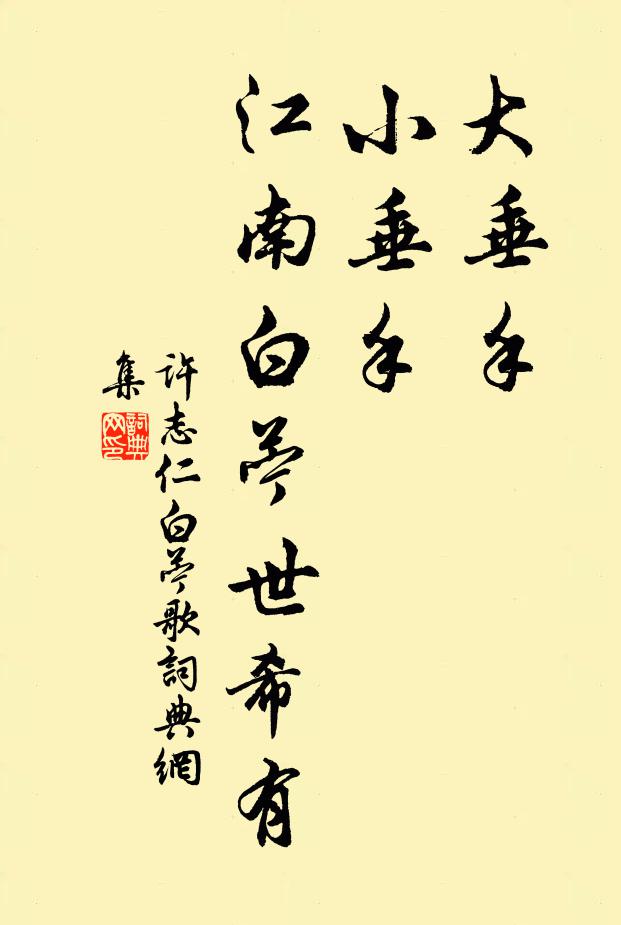 大垂手
小垂手
江南白苎世希有
许志仁白苎歌詞典網
集
詞典
网印